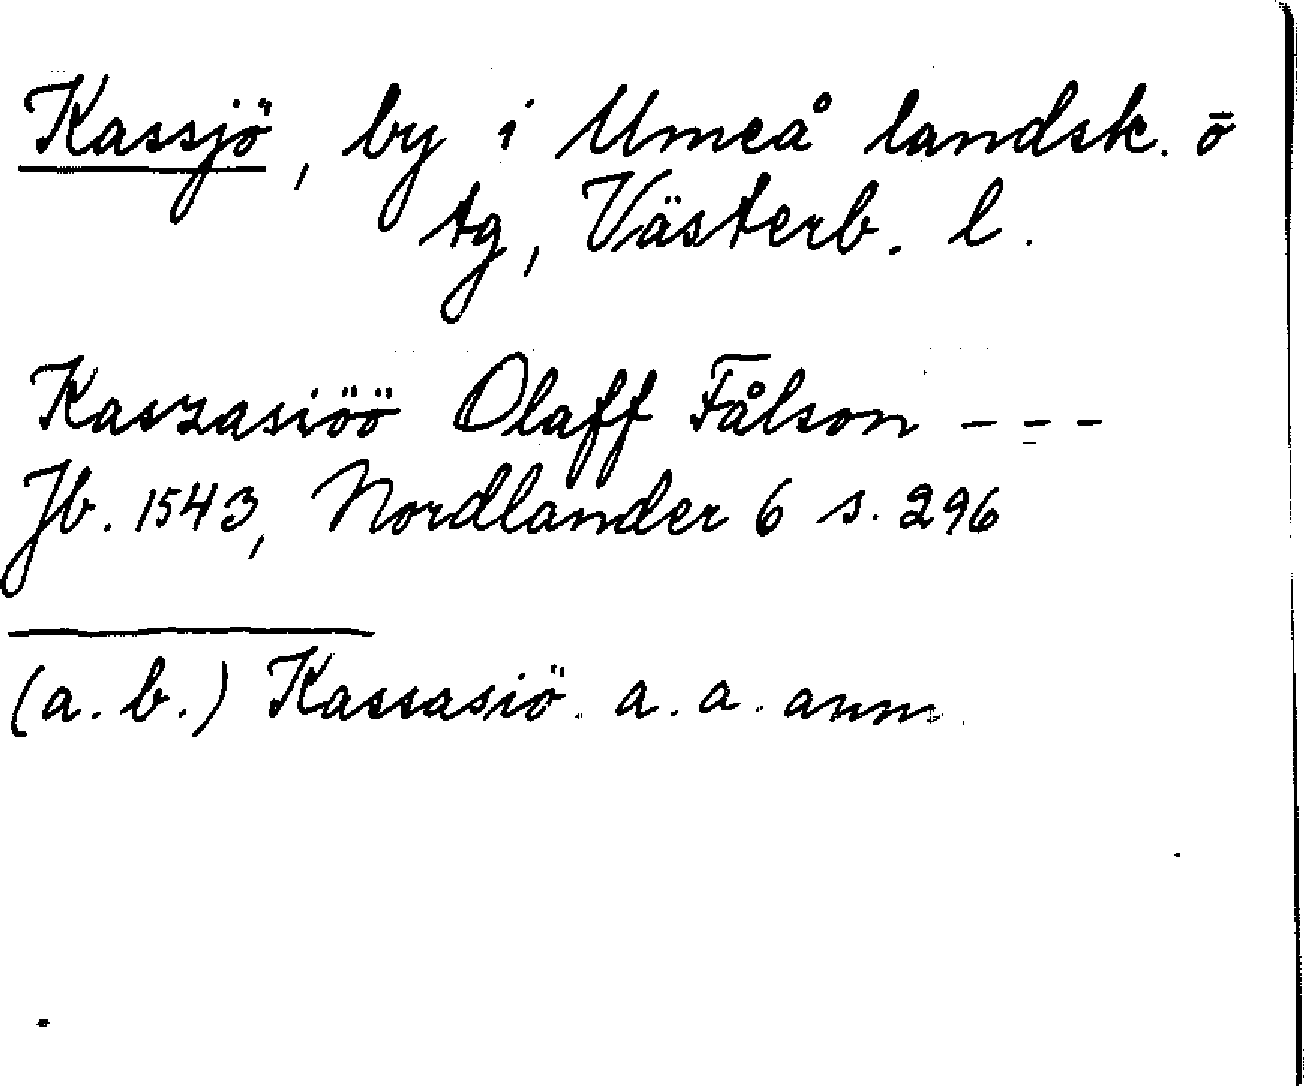 Kassjö, by i Umeå landsk. o
tg, Västerb. l.
Kaszasiöö Olaff Fålson - - -
Jb. 1543, Nordlander 6 s. 296
(a. b.) Kassasiö a. a. anm.